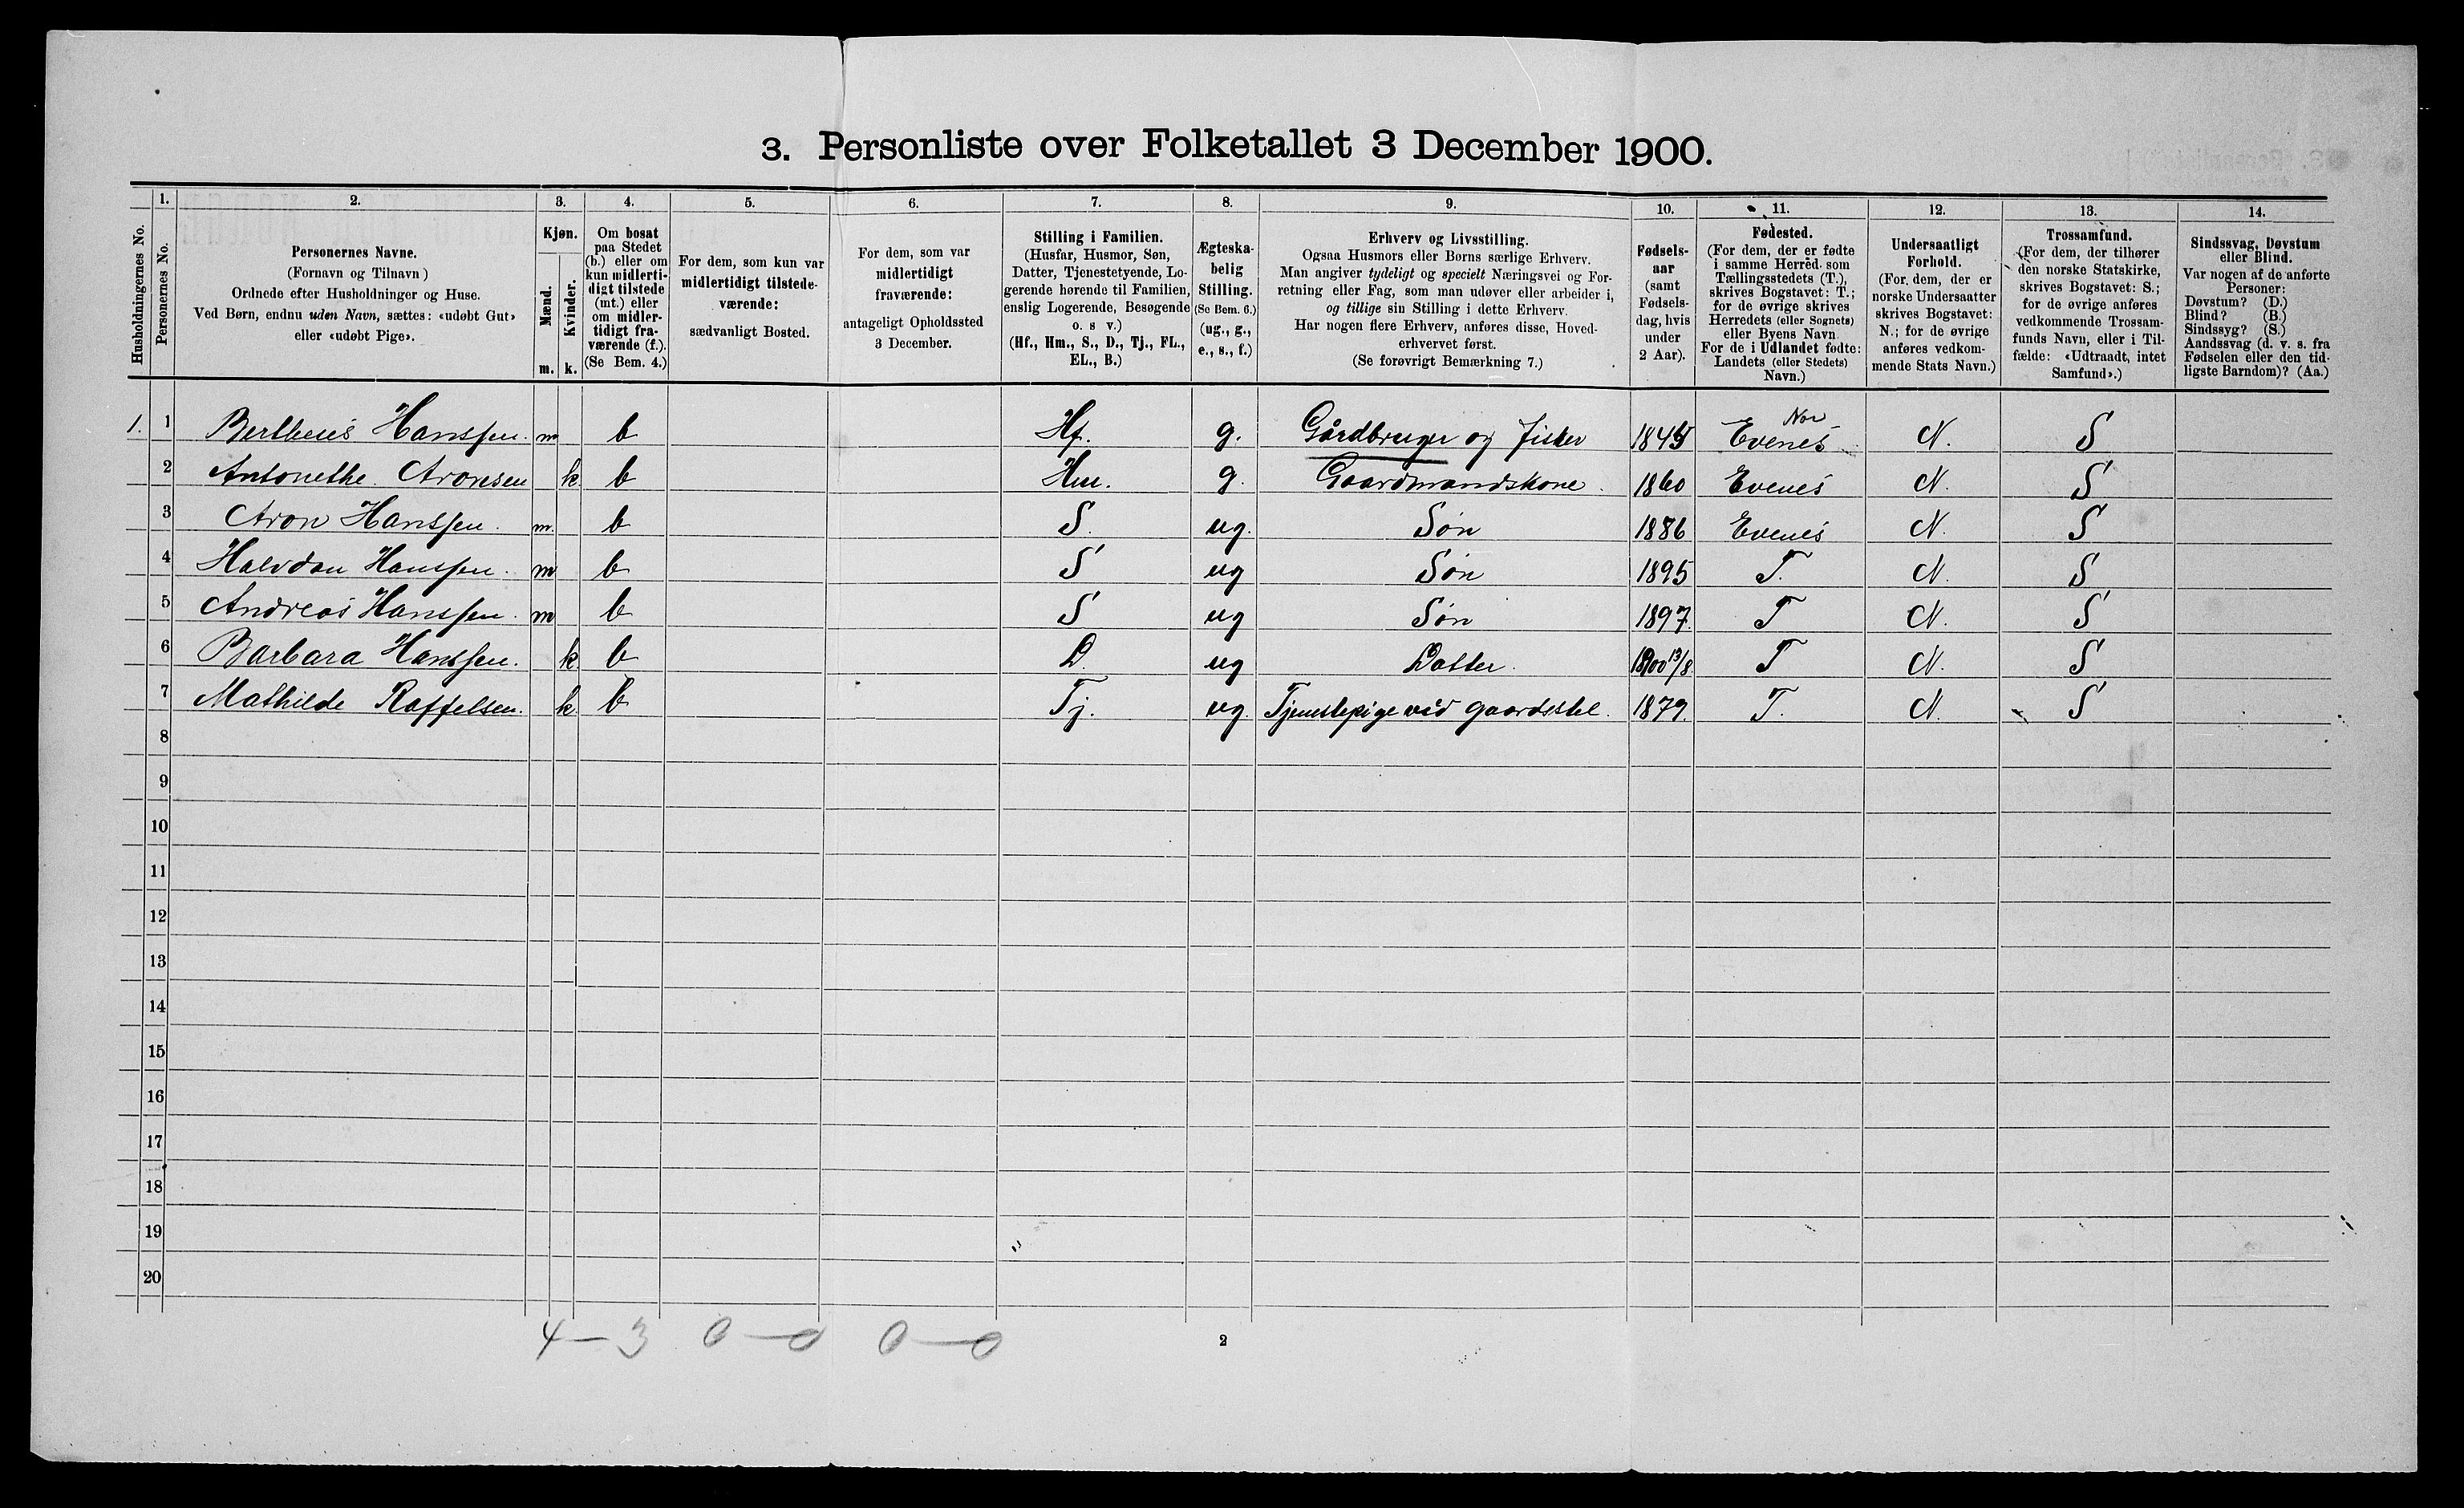 3. Personliste over Folketallet 3 December 1900.
Husholdningernes No.
1.
Personernes No.
2.
Personernes Navne.
(Fornavn og Tilnavn)
Ordnede efter Husholdninger og Huse.
Ved Børn, endnu uden Navn, sættes: «udøbt Gut»
eller «udøbt Pige».
3.
Kjøn.
Mænd.
Kvinder.
m. k.
4.
Om bosat
paa Stedet
(b.) eller om
kun midlerti-
digt tilstede
(mt.) eller
om midler-
tidigt fra-
værende (f.).
(Se Bem. 4.)
5.
For dem, som kun var
midlertidigt tilstede-
værende:
sædvanligt Bosted.
6.
For dem, som var
midlertidigt
fraværende:
antageligt Opholdssted
3 December.
7.
Stilling i Familien.
(Husfar, Husmor, Søn,
Datter, Tjenestetyende, Lo-
gerende hørende til Familien,
enslig Logerende, Besøgende
o. s v.)
(Hf., Hm., S., D., Tj., FL.,
EL., B.)
8.
Ægteska-
belig
Stilling.
(Se Bem. 6.)
(ug., g.,
e., s., f.)
9.
Erhverv og Livsstilling.
Ogsaa Husmors eller Børns særlige Erhverv.
Man angiver tydeligt og specielt Næringsvei og For-
retning eller Fag, som man udøver eller arbeider i,
og tillige sin Stilling i dette Erhverv.
Har nogen flere Erhverv, anføres disse, Hoved-
erhvervet først.
(Se forøvrigt Bemærkning 7.)
10.
Fødsels-
aar
(samt
Fødsels-
dag, hvis
under
2 Aar).
11.
Fødested.
(For dem, der er fødte
i samme Herred som
Tællingsstedets (T.),
skrives Bogstavet: T.;
for de øvrige skrives
Herredets (eller Sognets)
eller Byens Navn.
For de i Udlandet fødte:
Landets (eller Stedets)
Navn.)
12.
Undersaatligt
Forhold.
(For dem, der er
norske Undersaatter
skrives Bogstavet:
N.; for de øvrige
anføres vedkom-
mende Stats Navn.)
13.
Trossamfund.
(For dem, der tilhører
den norske Statskirke,
skrives Bogstavet: S.;
for de øvrige anføres
vedkommende Trossam-
funds Navn, eller i Til-
fælde: «Udtraadt, intet
Samfund».)
14.
Sindssvag, Døvstum
eller Blind.
Var nogen af de anførte
Personer:
Døvstum? (D.)
Blind? (B.)
Sindssyg? (S.)
Aandssvag (d. v. s. fra
Fødselen eller den tid-
ligste Barndom)? (Aa.)
1. 1 Hanssen. m b Hf. g. Gårdbruger og fisker 1845 Nor Evenes N. S
2 Antonethe Aronsen k b Hm. g. Gaardmandskone. 1860 Evenes N. S
3 Aron Hanssen. m. b S. ug. Søn 1886 Evenes N. S
4 Halvdan Hanssen. m b S ug Søn 1895 T. N. S
5 Andreas Hanssen. m b S ug Søn 1897 T N. S
6 Barbara Hanssen. k b D. ug Datter. 1900 13/8 T N. S
7 Mathilde Raffelsen. k b Tj. ug. Tjenestepige ved gaardsstel. 1879. T. N. S
8
9
10
11
12
13
14
15
16
17
18
19
20
4 — 3 0 — 0 0 — 0
2